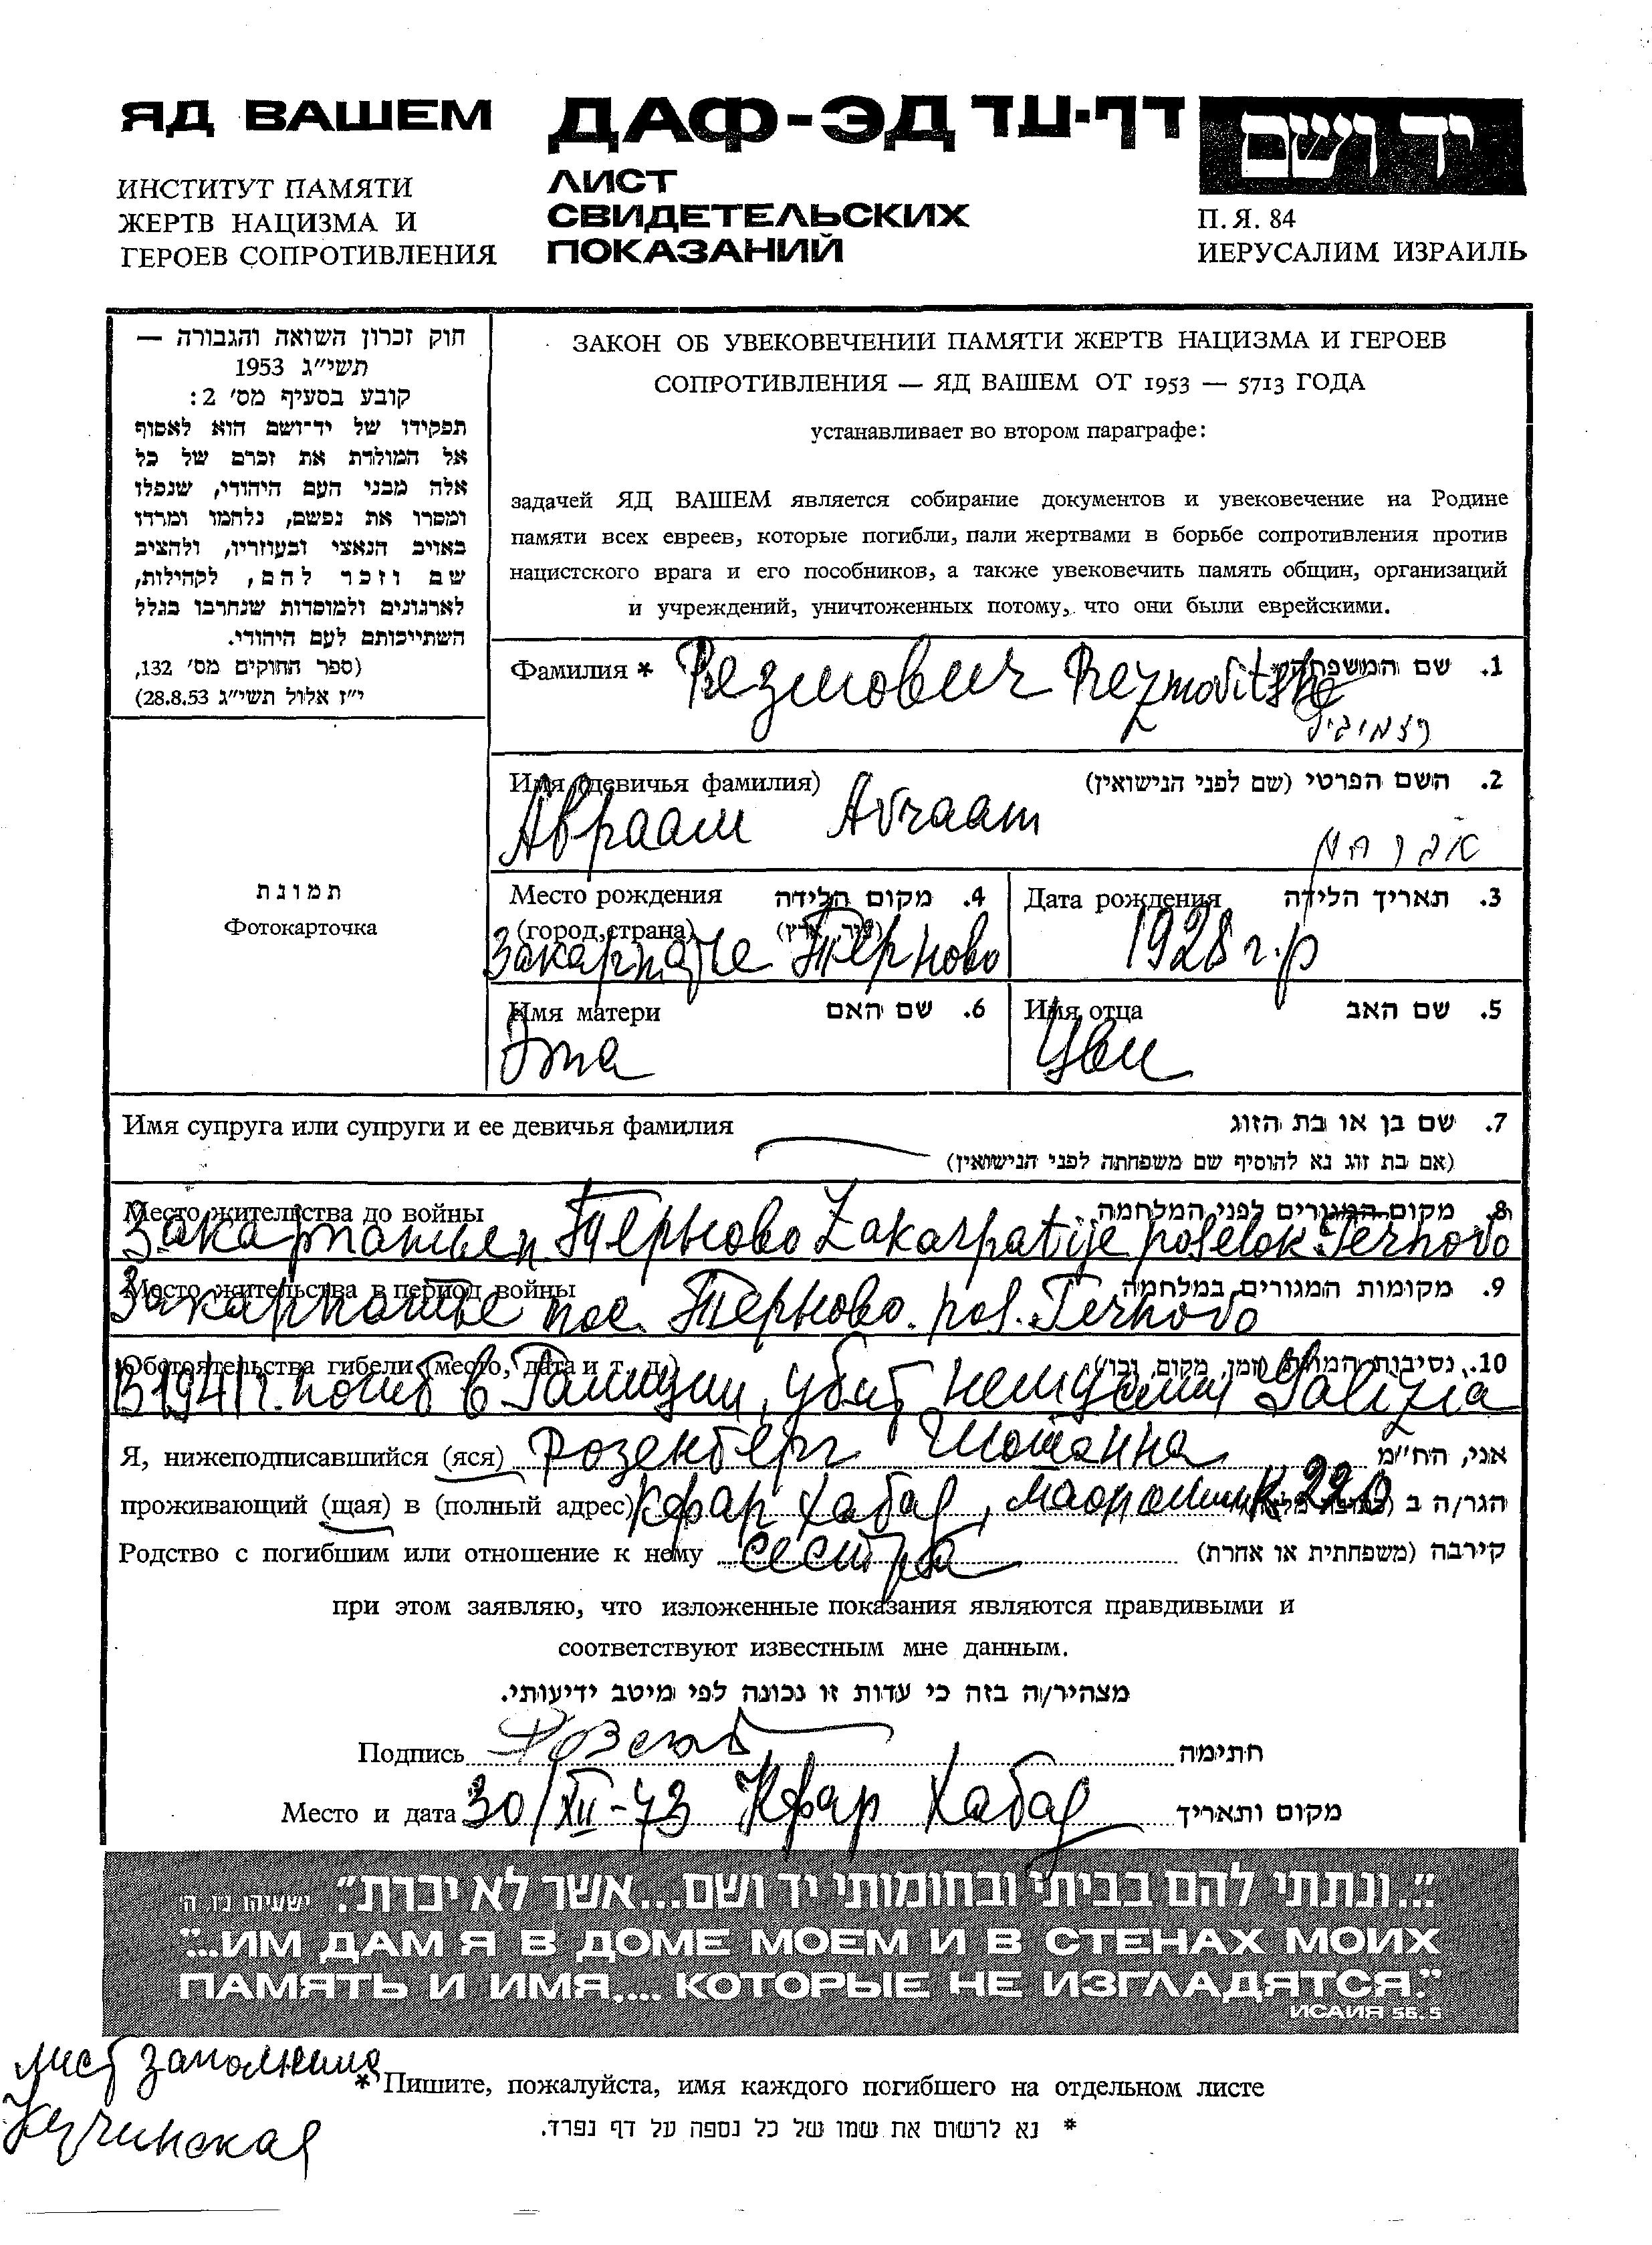 ЯД ВАШЕМ
ИНСТИТУТ ПАМЯТИ
ЖЕРТВ НАЦИЗМА И
ГЕРОЕВ СОПРОТИВЛЕНИЯ
ДАФ-ЭД דף-עד
ЛИСТ
СВИДЕТЕЛЬСКИХ
ПОКАЗАНИЙ
יד ושם
П. Я. 84
ИЕРУСАЛИМ ИЗРАИЛЬ
חוק זכרון השואה והגבורה —
תשי״ג 1953
קובע בסעיף מס׳ 2:
תפקידו של יד־ושם הוא לאסוף
אל המולדת את זכרם של כל
אלה מבני העם היהודי, שנפלו
ומסרו את נפשם, נלחמו ומרדו
באויב הנאצי ובעוזריו, ולהציב
שם וזכר להם, לקהילות,
לארגונים ולמוסדות שנחרבו בגלל
השתייכותם לעם היהודי.
(ספר החוקים מס׳ 132,
י״ז אלול תשי״ג 28.8.53)
ЗАКОН ОБ УВЕКОВЕЧЕНИИ ПАМЯТИ ЖЕРТВ НАЦИЗМА И ГЕРОЕВ
СОПРОТИВЛЕНИЯ — ЯД ВАШЕМ ОТ 1953 — 5713 ГОДА
устанавливает во втором параграфе:
задачей ЯД ВАШЕМ является собирание документов и увековечение на Родине
памяти всех евреев, которые погибли, пали жертвами в борьбе сопротивления против
нацистского врага и его пособников, а также увековечить память общин, организаций
и учреждений, уничтоженных потому, что они были еврейскими.
תמונת
Фотокарточка
Фамилия * Резмович 1. שם המשפחה
Имя (девичья фамилия) 2. השם הפרטי (שם לפני הנישואין)
Авраам Avraam
אברהם
Место рождения 4. מקום הלידה
(город, страна) (עיר, ארץ)
Закарпатье Терново
Дата рождения 3. תאריך הלידה
1928 г.р
Имя матери 6. שם האם
Эта
Имя отца 5. שם האב
Цви
Имя супруга или супруги и ее девичья фамилия 7. שם בן או בת הזוג
(אם בת זוג נא להוסיף שם משפחתה לפני הנישואין)
Место жительства до войны 8. מקום המגורים לפני המלחמה
Закарпатье п Терново Zakarpatije poselok Ternovo
Место жительства в период войны 9. מקומות המגורים במלחמה
Закарпатье пос. Терново. pos. Ternovo
Обстоятельства гибели (место, дата и т. д.) 10. נסיבות המוות (זמן, מקום, וכו׳)
В 1941 г. погиб в Галиции, убит немцами Galizia
Я, нижеподписавшийся (яся) Розенберг Шошанна אני, הח״מ
проживающий (щая) в (полный адрес) Кфар Хабад, הגר/ה ב
Родство с погибшим или отношение к нему сестра קירבה (משפחתית או אחרת)
при этом заявляю, что изложенные показания являются правдивыми и
соответствуют известным мне данным.
מצהיר/ה בזה כי עדות זו נכונה לפי מיטב ידיעותי.
Подпись חתימה
Место и дата 30/XII-73 Кфар Хабад מקום ותאריך
״...ונתתי להם בביתי ובחומותי יד ושם...אשר לא יכרת״. ישעיהו נ״ו, ה׳
"...ИМ ДАМ Я В ДОМЕ МОЕМ И В СТЕНАХ МОИХ
ПАМЯТЬ И ИМЯ.... КОТОРЫЕ НЕ ИЗГЛАДЯТСЯ."
ИСАИЯ 56. 5
лист заполнила
* Пишите, пожалуйста, имя каждого погибшего на отдельном листе
* נא לרשום את שמו של כל נספה על דף נפרד.